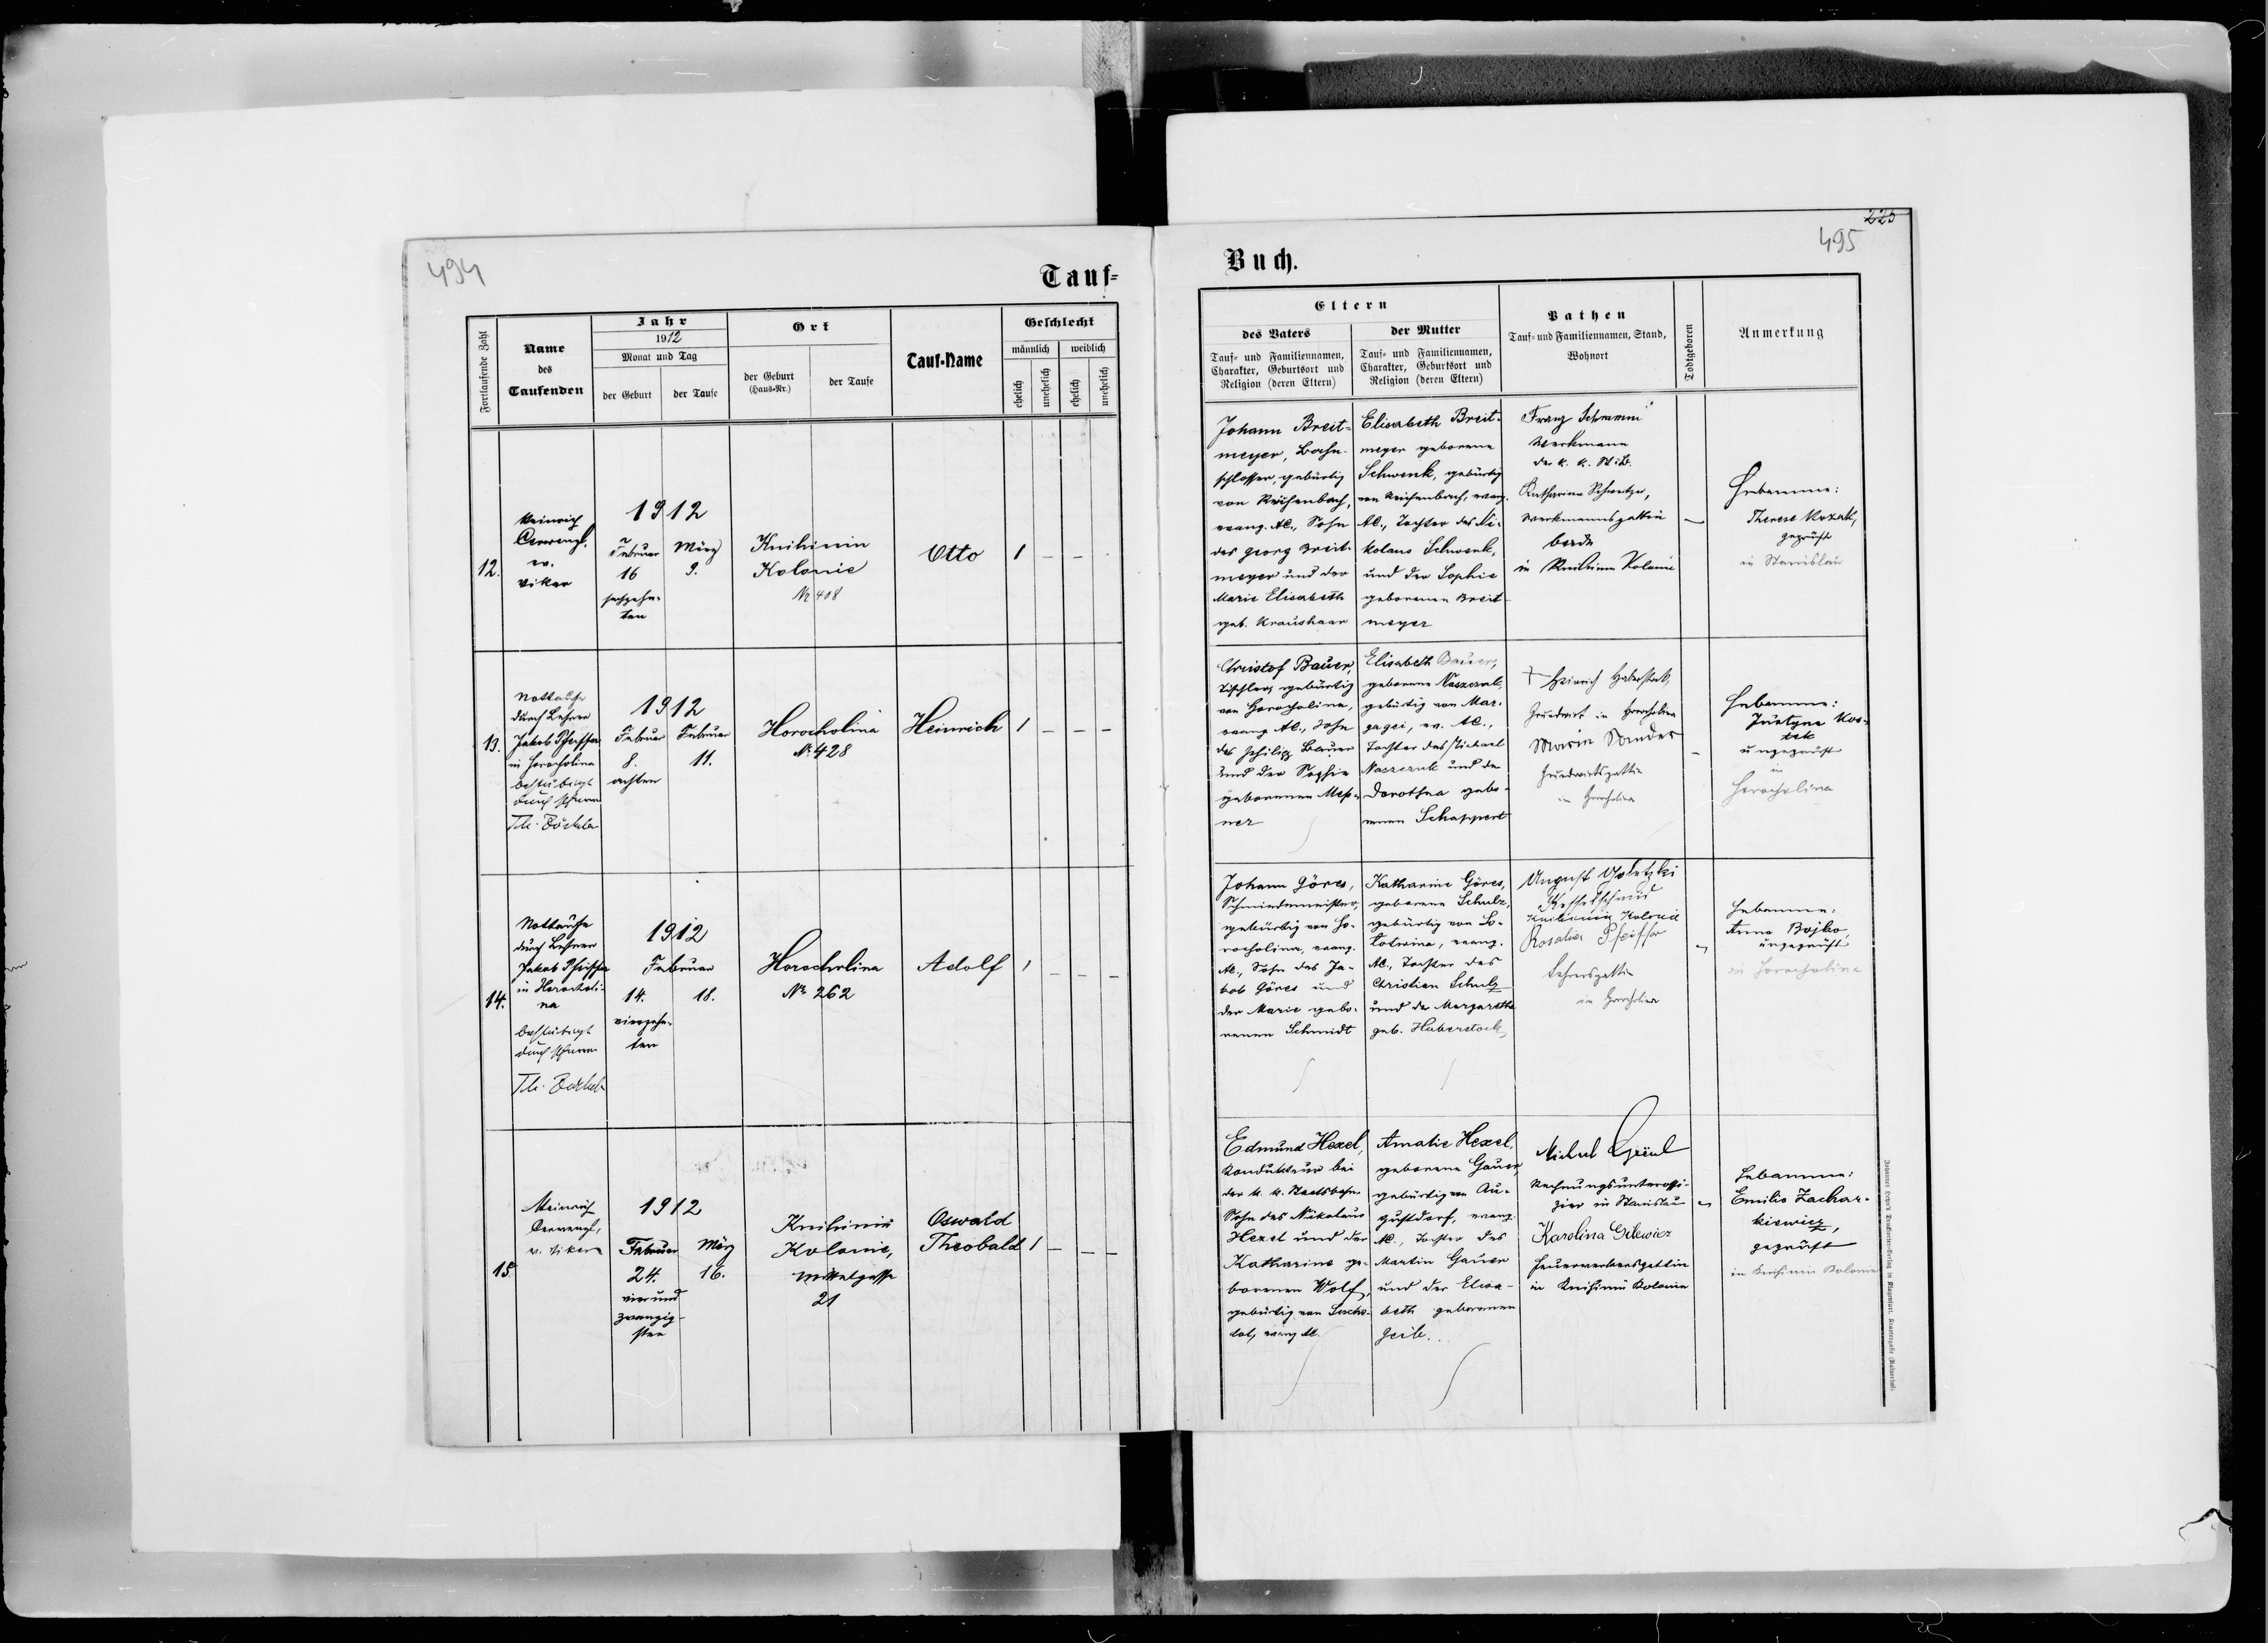 494
Tauf-
Fortlaufende Zahl
Name
des
Taufenden
Jahr
1912
Monat und Tag
der Geburt
der Taufe
Ort
der Geburt
(Haus-Nr.)
der Taufe
Tauf-Name
Geschlecht
männlich
weiblich
ehelich
unehelich
ehelich
unehelich
12.
Heinrich
ev.
Vikar
1912
Februar
16
sechzehn-
ten
März
9.
Knihinin
Kolonie
Nr 408
Otto
1
13.
Nottaufe
durch Lehrer
Jakob Pfeiffer
in Horocholina
bestätigt
durch Pfarrer
Th. Zöckler
1912
Februar
8.
achten
Februar
11.
Horocholina
Nr. 428
Heinrich
1
14.
Nottaufe
durch Lehrer
Jakob Pfeiffer
in Horocholi-
na
bestätigt
durch Pfarrer
Th. Zöckler
1912
Februar
14.
vierzehn-
ten
18.
Horocholina
Nr 262
Adolf
1
15.
Heinrich
ev. Vikar
1912
Februar
24.
vier und
zwanzig-
sten
März
16.
Knihinin
Kolonie,
Mittelgasse
21
Oswald
Theobald
1
225
495
Buch.
Eltern
des Vaters
Tauf- und Familiennamen,
Charakter, Geburtsort und
Religion (deren Eltern)
der Mutter
Tauf- und Familiennamen,
Charakter, Geburtsort und
Religion (deren Eltern)
Pathen
Tauf- und Familiennamen, Stand,
Wohnort
Todtgeboren
Anmerkung
Johann Breit-
meyer, Bahn-
schlosser, gebürtig
von Reichenbach,
evang. AC., Sohn
des Georg Breit-
meyer und der
Marie Elisabeth
geb. Kraushaar
Elisabeth Breit-
meyer geborene
Schwenk, gebürtig
von Reichenbach, evang.
AC., Tochter des Ni-
kolaus Schwenk,
und der Sophie
geborenen Breit-
meyer
Franz Schramm
Werkmann
der k. k. St. B.
Katharina
Werkmannsgattin
beide
in Knihinin Kolonie
Hebamme:
Therese Kozak,
geprüft
in Stanislau
Christof Bauer,
Tischler, gebürtig
von Horocholina,
evang. AC., Sohn
des Philipp Bauer
und der Sophie
geborenen Mess-
ner
Elisabeth Bauer,
geborene Naszczuk,
gebürtig von Mar-
, ev. AC.,
Tochter des Michael
Naszczuk und der
Dorothea gebo-
renen Schappert
+ Heinrich Haberstock,
Grundwirt in Horocholina
Maria Sander
Grundwirtsgattin
in Horocholina
Hebamme:
Justyna Kos-
ungeprüft
in
Horocholina
Johann Göres,
Schmiedemeister,
gebürtig von Ho-
rocholina, evang.
AC., Sohn des Ja-
kob Göres und
der Marie gebo-
renen Schmidt
Katharine Göres,
geborene Schulz,
gebürtig von So-
lotwina, evang.
AC., Tochter des
Christian Schulz
und der Margarethe
geb. Haberstock,
August
Kesselschmied
Knihinin Kolonie
Rosalia Pfeiffer
Lehrersgattin
in Horocholina
Hebamme:
Anna Bojko,
ungeprüft
in Horocholina
Edmund Hexel,
Kondukteur bei
der k. k. Staatsbahn
Sohn des Nikolaus
Hexel und der
Katharine ge-
borenen Wolf,
evang. AC.
Amalie Hexel,
geborene Gauer,
gebürtig von Au-
gustdorf, evang.
AC., Tochter des
Martin Gauer
und der Elisa-
beth geborenen
Geib.
Michael
Rechnungsunteroffi-
zier in Stanislau
Karolina Gilewicz
Feuerwerkersgattin
in Knihinin Kolonie
Hebamme:
Emilie Zachar-
kiewicz,
geprüft
in Knihinin Kolonie